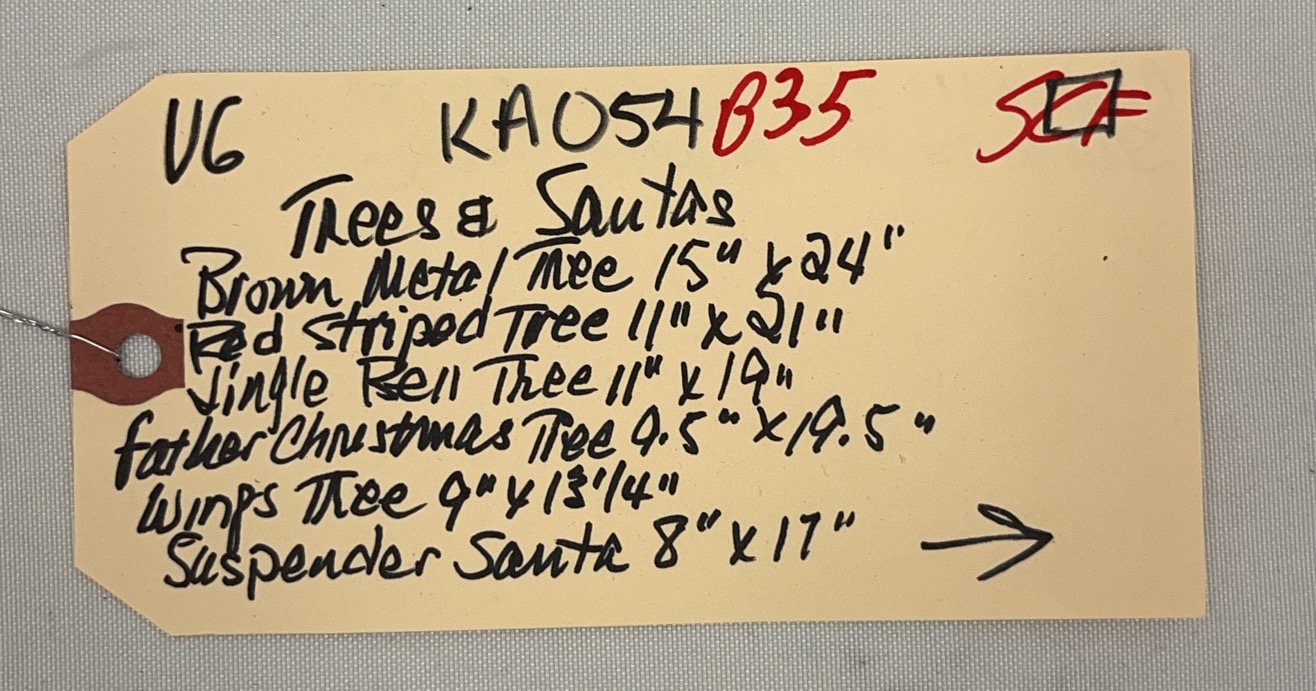 VG KA054 B35 SCF
Trees & Santas
Brown Metal Tree 15" x 24"
Red Striped Tree 11" x 21"
Jingle Bell Tree 11" x 19"
father Christmas Tree 9.5" x 19.5"
Wings Tree 9" x 13 1/4"
Suspender Santa 8" x 17" →